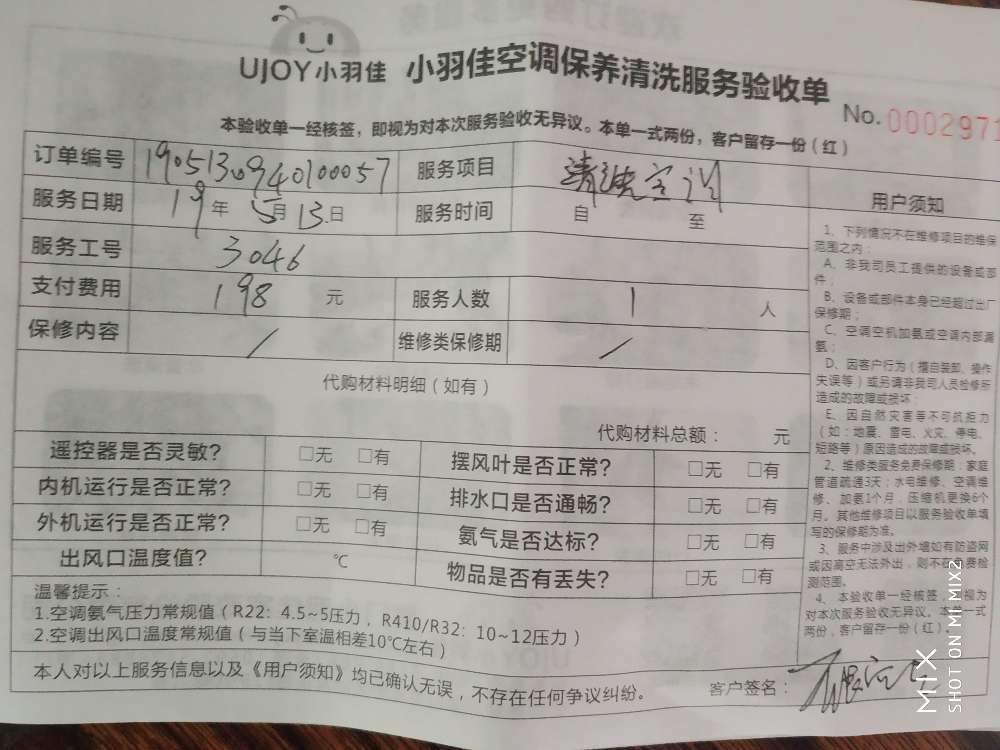 UJOY小羽佳 小羽佳空调保养清洗服务验收单
No. 0002971
本验收单一经核签，即视为对本次服务验收无异议。本单一式两份，客户留存一份（红）
订单编号 1905130940100057 服务项目 清洗空调
服务日期 19年 5月 13日 服务时间 自 至
服务工号 3046
支付费用 198 元 服务人数 1 人
保修内容 / 维修类保修期 /
代购材料明细（如有）
代购材料总额： 元
遥控器是否灵敏? □无 □有 摆风叶是否正常? □无 □有
内机运行是否正常? □无 □有 排水口是否通畅? □无 □有
外机运行是否正常? □无 □有 氨气是否达标? □无 □有
出风口温度值? ℃ 物品是否有丢失? □无 □有
温馨提示：
1.空调氨气压力常规值（R22：4.5~5压力，R410/R32：10~12压力）
2.空调出风口温度常规值（与当下室温相差10℃左右）
本人对以上服务信息以及《用户须知》均已确认无误，不存在任何争议纠纷。
客户签名：
用户须知
1、下列情况不在维修项目的维保
范围之内：
A、非我司员工提供的设备或部
件；
B、设备或部件本身已经超过出厂
保修期；
C、空调空机加氨或空调内部漏
氨；
D、因客户行为（擅自装卸、操作
失误等）或另请非我司人员检修所
造成的故障或损坏；
E、因自然灾害等不可抗拒力
（如：地震、雷电、火灾、停电、
短路等）原因造成的故障或损坏。
2、维修类服务免费保修期：家庭
管道疏通3天；水电维修、空调维
修、加氨1个月，压缩机更换6个
月。其他维修项目以服务验收单填
写的保修期为准。
3、服务中涉及出外墙如有防盗网
或因高空无法外出，则不在免费检
测范围。
4、本验收单一经核签，即视为
对本次服务验收无异议。本单一式
两份，客户留存一份（红）。
MIX
SHOT ON MI MIX2